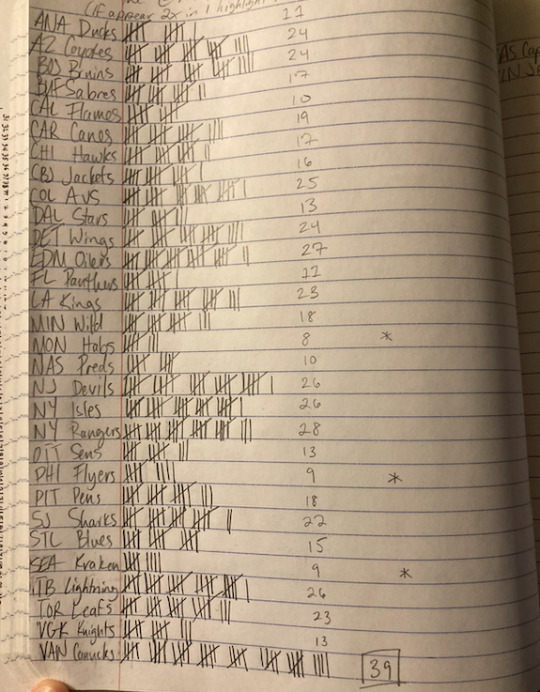 (if appear 2x in 1 highlight
ANA Ducks
AZ Coyotes 24
BOS Bruins 24
BUF Sabres 17
CAL Flames 10
CAR Canes 19
CHI Hawks 17
CBJ Jackets 16
COL AVS 25
DAL Stars 13
DET Wings 24
EDM Oilers 27
FL Panthers
LA Kings 23
MIN Wild 18
MON Habs 8 *
NAS Preds 10
NJ Devils 26
NY Isles 26
NY Rangers 28
OTT Sens 13
PHI Flyers 9 *
PIT Pens 18
SJ Sharks 22
STL Blues 15
SEA Kraken 9 *
TB Lightning 26
TOR Leafs 23
VGK Knights 13
VAN Canucks 39